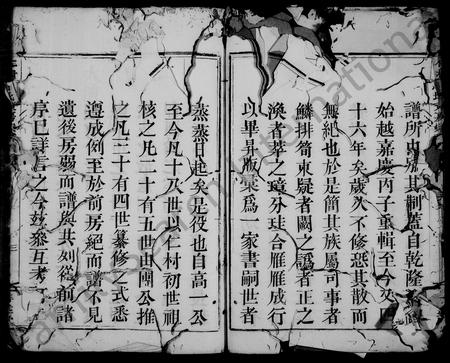 譜所由○其制蓋自乾隆
始越嘉慶丙子重輯至今又四
十六年矣歲久不修恐其散而
無紀也於是簡其族屬司事者
鱗排簡束疑者闕之譌者正之
渙者萃之璋分珪合雁雁成行
以畢昇版桒為一家書嗣世者
蒸蒸日起矣是役也自高一公
至今凡十及世以仁村初世祖
核之凡二十有五世由團公推
之凡三十有四世纂修之式悉
遵成例至於前房絕而譜不見
遺後房毀而譜與共刻從前諸
序已詳言之今茲叅互考